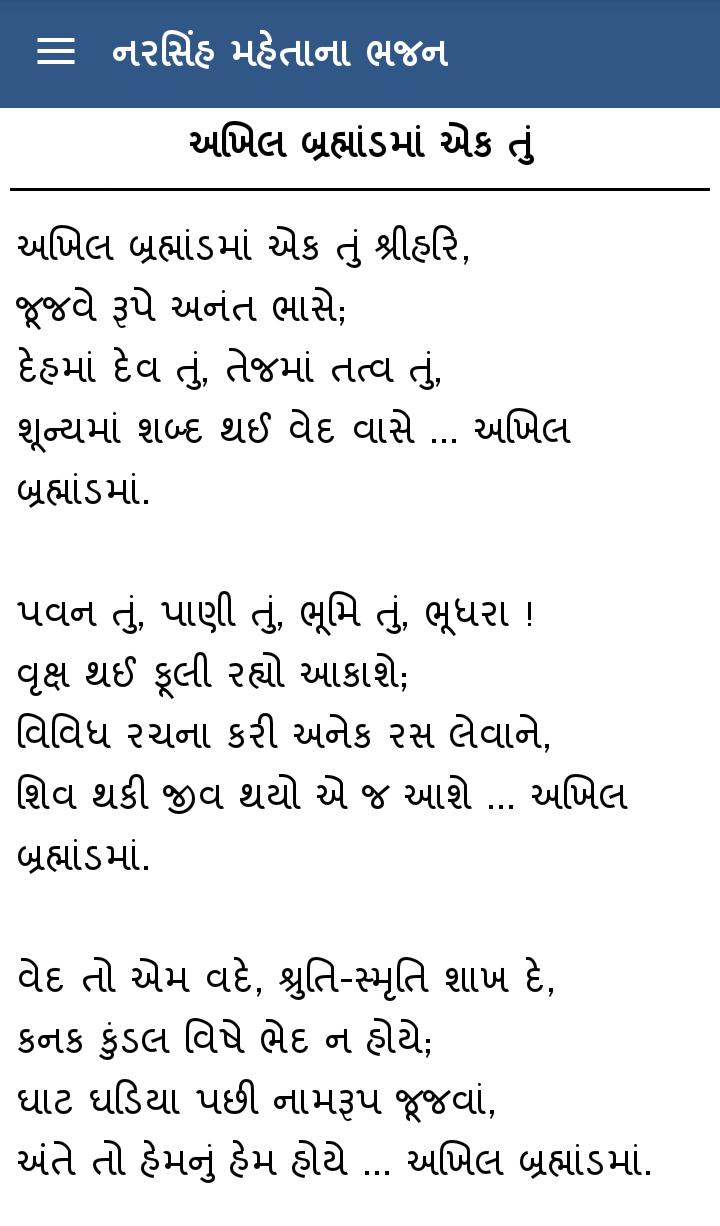 નરસિંહ મહેતાના ભજન
અખિલ બ્રહ્માંડમાં એક તું
અખિલ બ્રહ્માંડમાં એક તું શ્રીહરિ,
જૂજવે રૂપે અનંત ભાસે;
દેહમાં દેવ તું, તેજમાં તત્વ તું,
શૂન્યમાં શબ્દ થઈ વેદ વાસે ... અખિલ
બ્રહ્માંડમાં.
પવન તું, પાણી તું, ભૂમિ તું, ભૂધરા !
વૃક્ષ થઈ ફૂલી રહ્યો આકાશે;
વિવિધ રચના કરી અનેક રસ લેવાને,
શિવ થકી જીવ થયો એ જ આશે ... અખિલ
બ્રહ્માંડમાં.
વેદ તો એમ વદે, શ્રુતિ-સ્મૃતિ શાખ દે,
કનક કુંડલ વિષે ભેદ ન હોયે;
ઘાટ ઘડિયા પછી નામરૂપ જૂજવાં,
અંતે તો હેમનું હેમ હોયે ... અખિલ બ્રહ્માંડમાં.